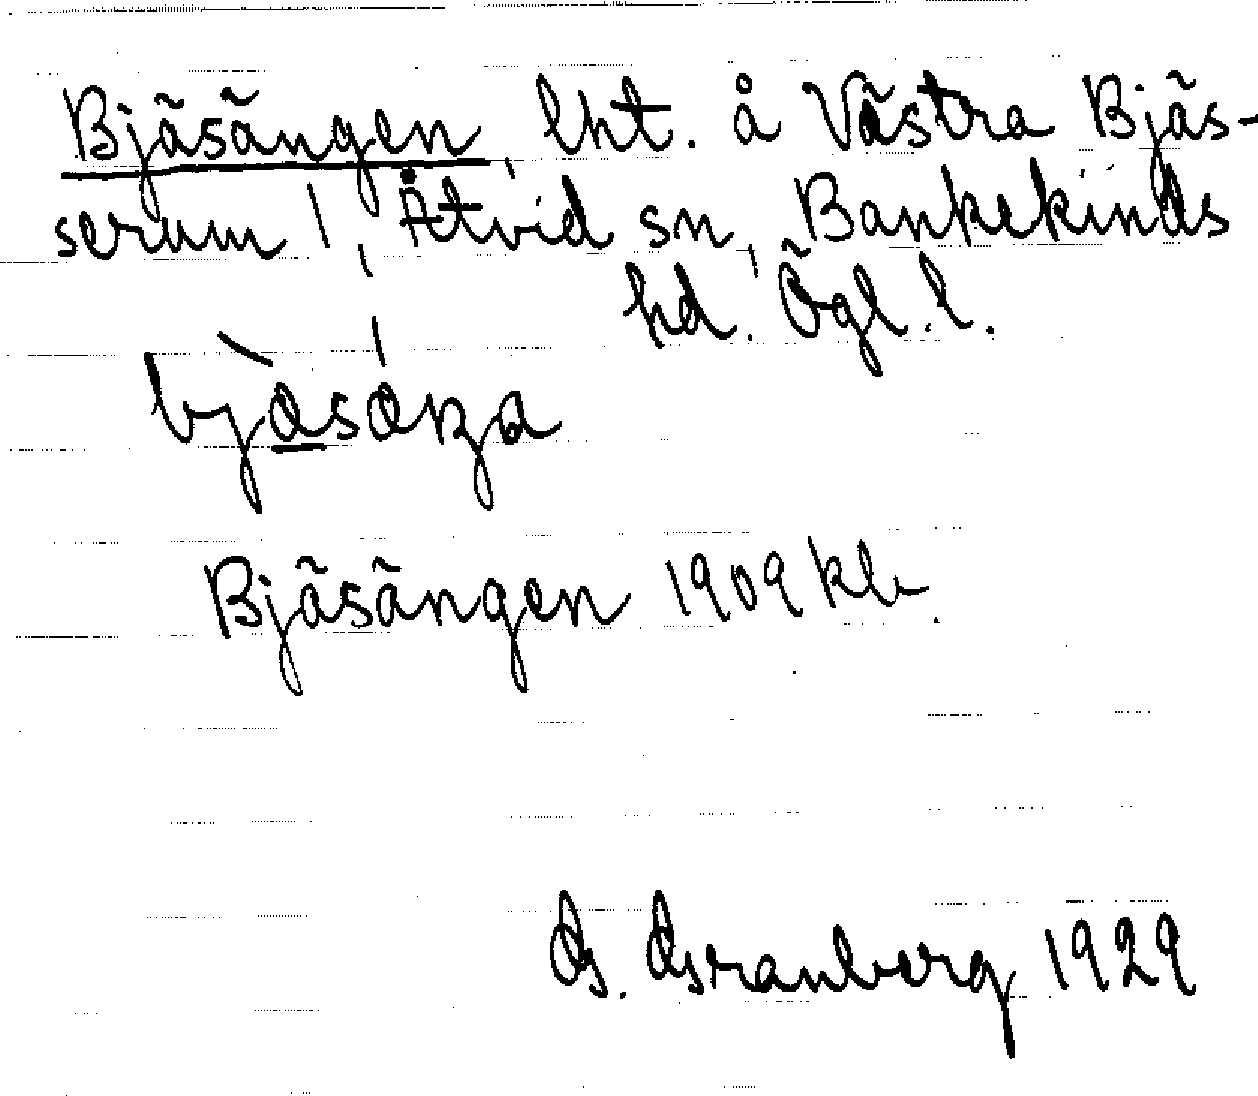 Bjäsängen, lht. å Västra Bjäs-
serum 1, Åtvid sn, Bankekinds
hd. Ögl. l.
Bjäsängen 1909 kb
G. Granberg 1929